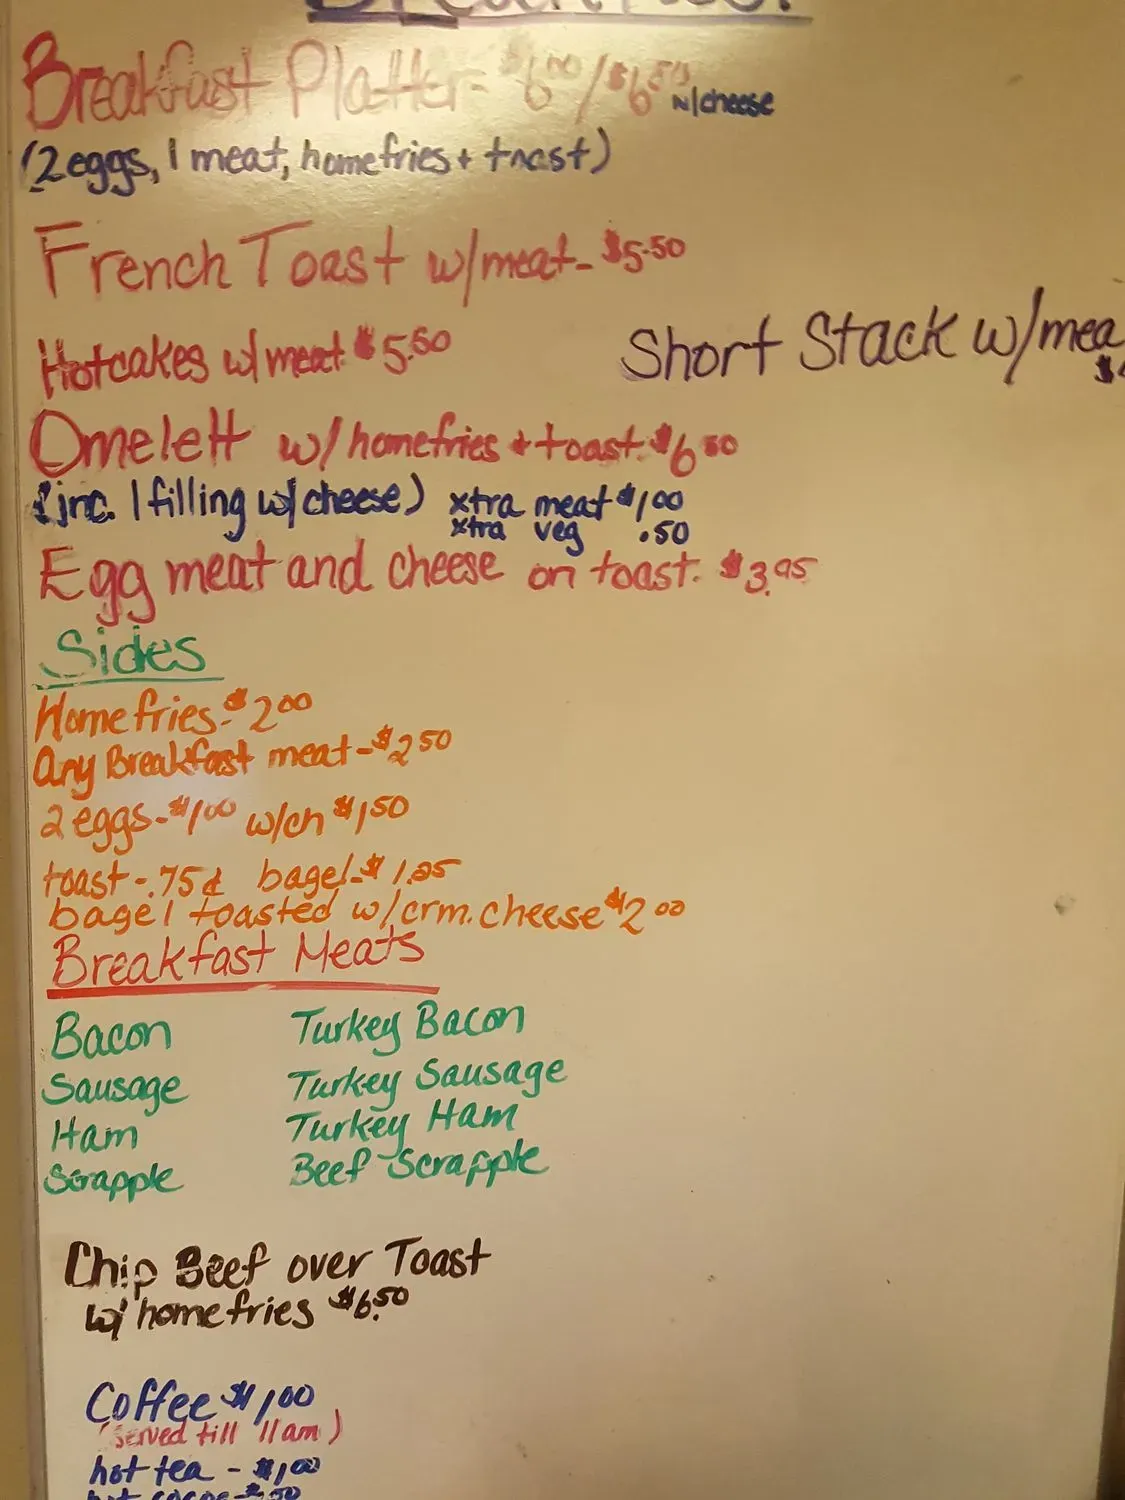 Breakfast Platter- $6.00/$6.50 w/cheese
(2 eggs, 1 meat, homefries + toast)
French Toast w/meat- $5.50
Hotcakes w/ meat $5.50
Short Stack w/mea
Omelett w/ homefries + toast. $6.50
(inc. 1 filling w/ cheese) xtra meat $1.00
xtra veg .50
Egg meat and cheese on toast. $3.95
Sides
Homefries-$2.00
Any Breakfast meat-$2.50
2 eggs-$1.00 w/ch $1.50
toast-.75¢ bagel-$1.25
bagel toasted w/crm. cheese $2.00
Breakfast Meats
Bacon Turkey Bacon
Sausage Turkey Sausage
Ham Turkey Ham
Scrapple Beef Scrapple
Chip Beef over Toast
w/ homefries $6.50
Coffee $1.00
(served till 11am)
hot tea - $1.00